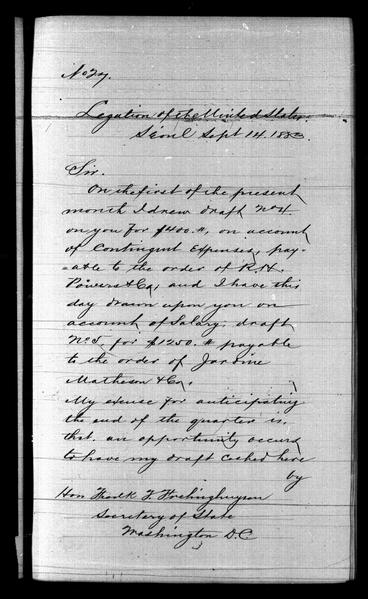 No 27.
Legation of the United States.
Séoul Sept 14. 1883.
Sir.
On the first of the present
month I drew draft No 4.
on you for $400.#, on account
of Contingent Expenses, pay-
-able to the order of R.H.
Powers & Co; and I have this
day drawn upon you on
account of Salary, draft
No. 5. for $1250.# payable
to the order of Jardine
Matheson & Co.
My excuse for anticipating
the end of the quarter is.
that. an opportunity occurs
to have my draft cashed here
by
Hon Fredk F Frelinghuysen
Secretary of State
Washington D.C